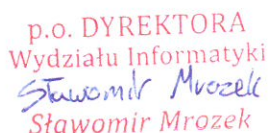 p.o. DYREKTORA
Wydziału Informatyki
Sławomir Mrozek
Sławomir Mrozek